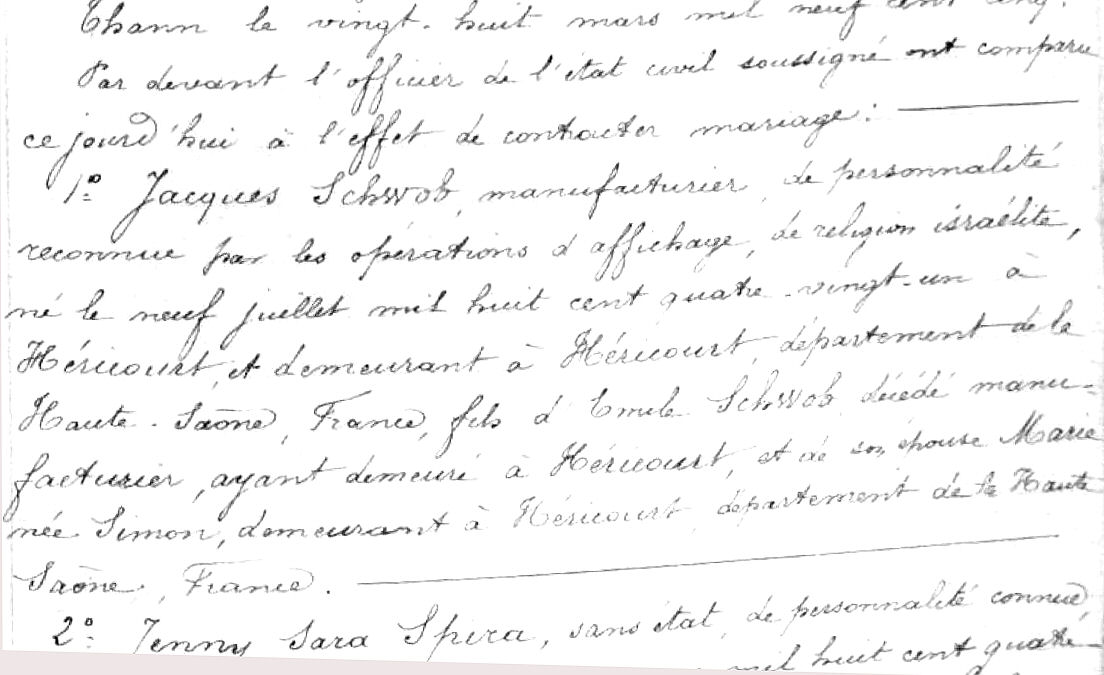 Thann le vingt-huit mars mil neuf cent cinq.
Par devant l'officier de l'état civil soussigné ont comparu
ce jourd'hui à l'effet de contracter mariage :
1º Jacques Schwob, manufacturier, de personnalité
reconnue par les opérations d'affichage, de religion israélite,
né le neuf juillet mil huit cent quatre-vingt-un à
Héricourt, et demeurant à Héricourt, département de la
Haute-Saône, France, fils d'Emile Schwob décédé manu-
facturier, ayant demeuré à Héricourt, et de son épouse Marie
née Simon, demeurant à Héricourt, département de la Haute
Saône, France.
2º Jenny Sara Spira, sans état, de personnalité connue,
mil huit cent quatre-